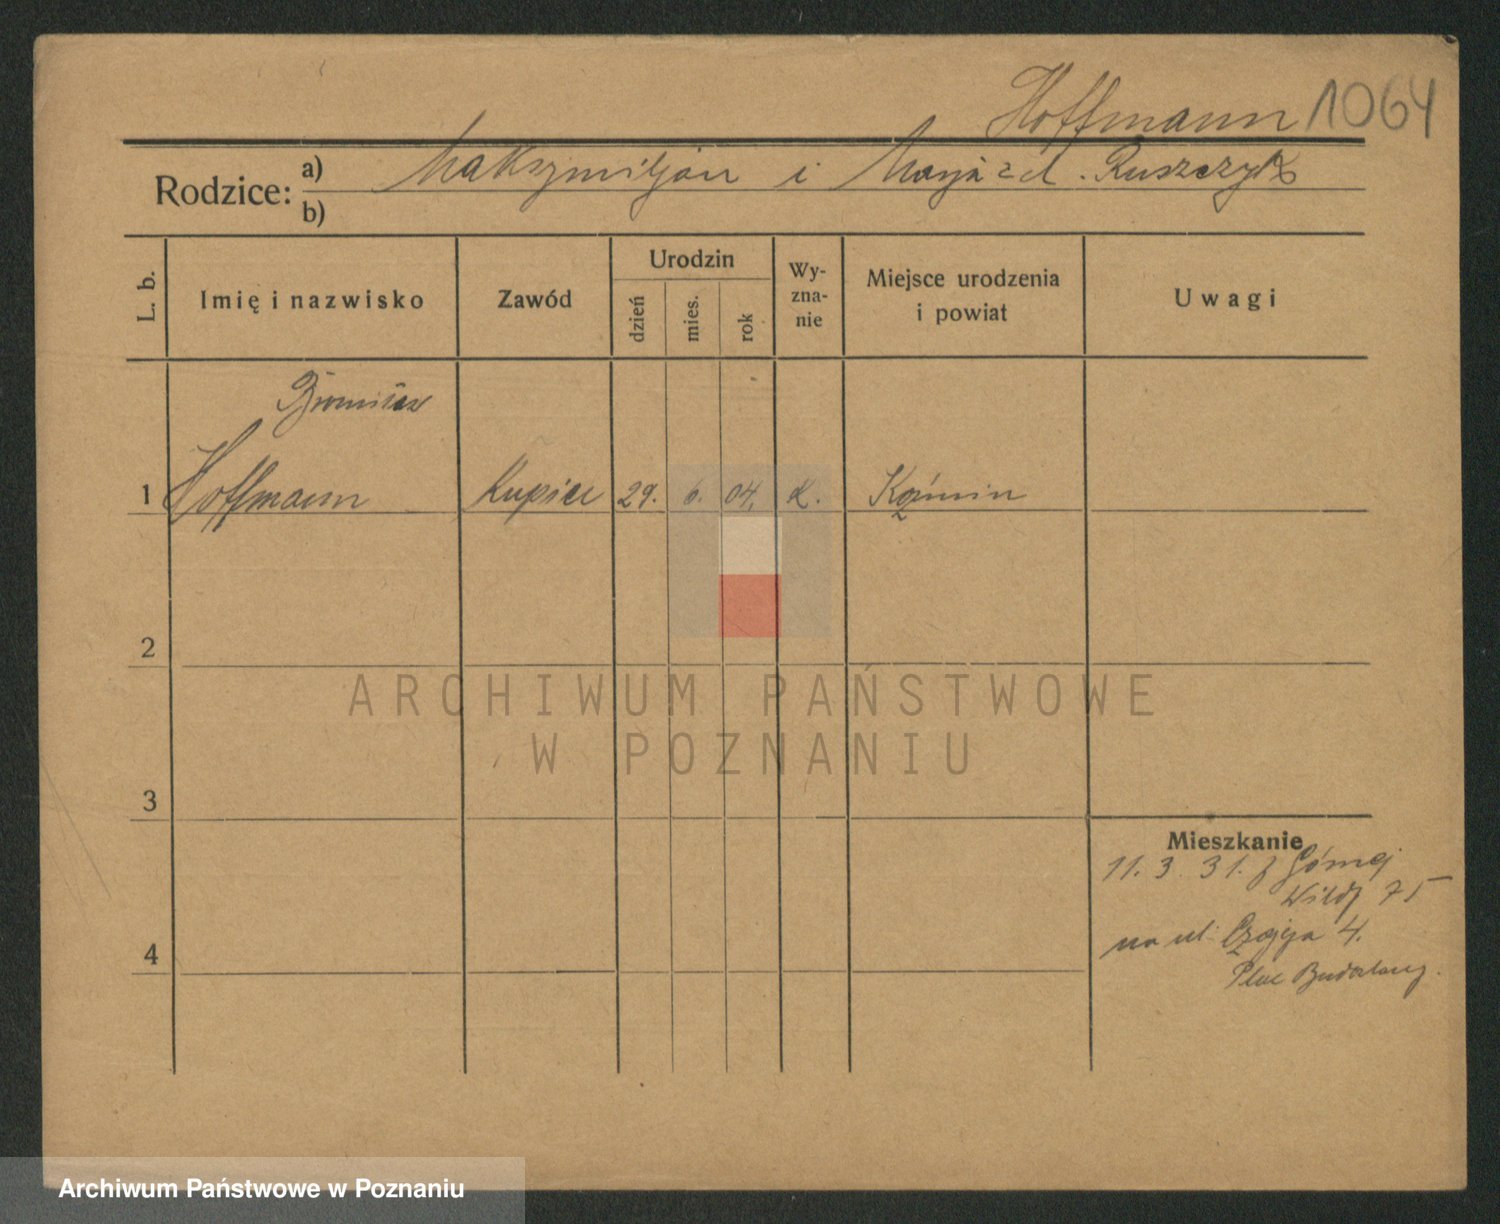 Hoffmann 1064
Rodzice: a) Maksymiljan i Marja z d. Ruszczyk
b)
L. b.
Imię i nazwisko
Zawód
Urodzin
dzień
mies.
rok
Wy-
zna-
nie
Miejsce urodzenia
i powiat
Uwagi
1 Hoffmann Kupiec 29. 6. 04. K. Koźmin
2
3
Mieszkanie
11. 3. 31. z Górnej
Wildy 75
4
na ul. 4.
Plac
ARCHIWUM PAŃSTWOWE
W POZNANIU
Archiwum Państwowe w Poznaniu